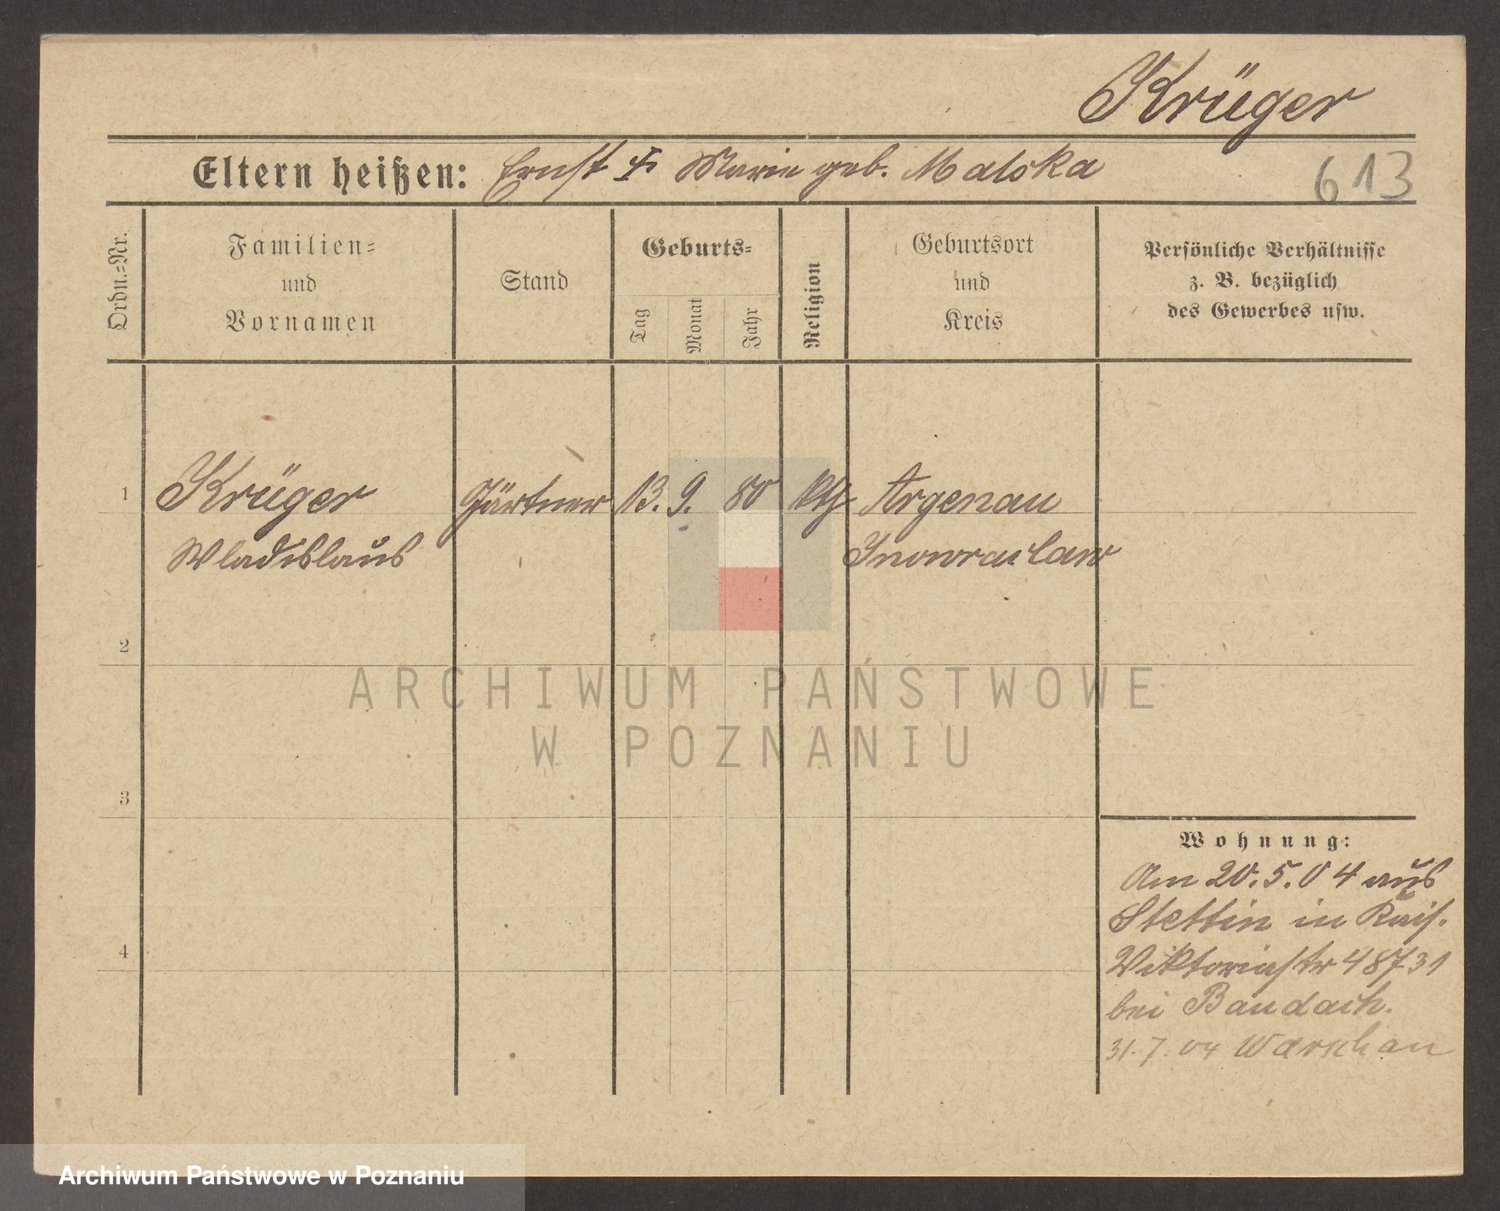 Krüger
Eltern heißen: Ernst & Marie geb. Malska
613
Ordn.=Nr.
Familien=
und
Vornamen
Stand
Geburts=
Tag
Monat
Jahr
Religion
Geburtsort
und
Kreis
Persönliche Verhältnisse
z. B. bezüglich
des Gewerbes usw.
1
Krüger Gärtner 13. 9. 80 kth Argenau
Wladislaus Inowraclaw
2
ARCHIWUM PAŃSTWOWE
W POZNANIU
3
Wohnung:
Am 20.5.04 aus
Stettin in Kais.
Viktoriastr
4
bei Baudach.
31.7.04 Warschau
Archiwum Państwowe w Poznaniu